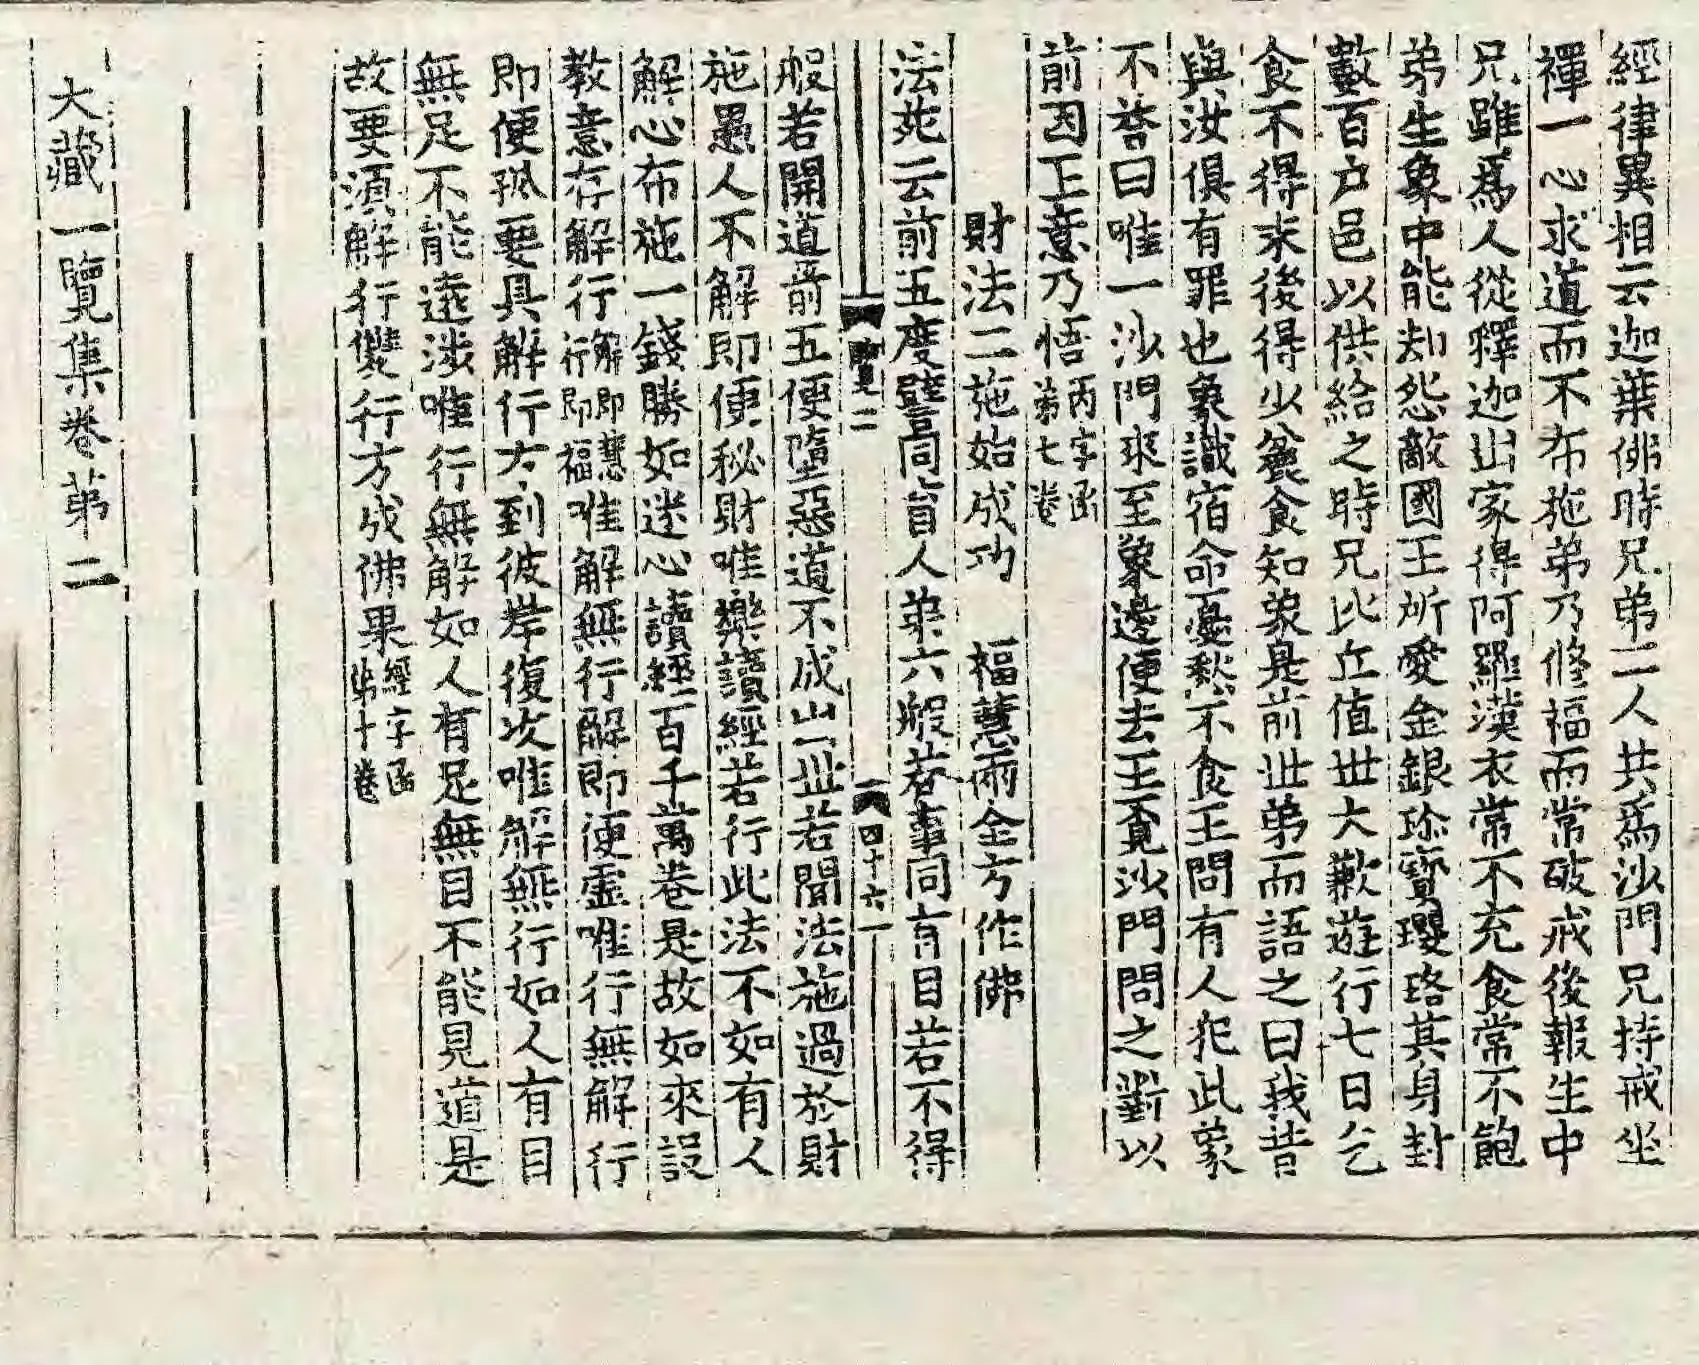 經律異相云迦葉佛時兄弟二人共爲沙門兄持戒坐
禪一心求道而不布施弟乃修福而常破戒後報生中
兄雖爲人從釋迦出家得阿羅漢衣常不充食常不飽
弟生象中能却怨敵國王所愛金銀珎寳瓔珞其身封
數百户邑以供給之時兄比丘值世大歉遊行七日乞
食不得末後得少麄食知象是前世弟而語之曰我昔
與汝俱有罪也象識宿命憂愁不食王問有人犯此象
不答曰唯一沙門來至象邊便去王覔沙門問之對以
前因王意乃悟丙字函第七卷
財法二施始成功　福慧兩全方作佛
法苑云前五度譬同盲人弟六般若事同有目若不得
覽二　四十六
般若開道前五便墮惡道不成出世若聞法施過於財
施愚人不解即便秘財唯樂讀經若行此法不如有人
解心布施一錢勝如迷心讀經百千萬卷是故如來設
教意存解行解即慧行即福唯解無行解即便虛唯行無解行
即便孤要具解行方到彼岸復次唯解無行如人有目
無足不能遠涉唯行無解如人有足無目不能見道是
故要須解行雙行方成佛果經字函第十卷
大藏一覽集卷第二